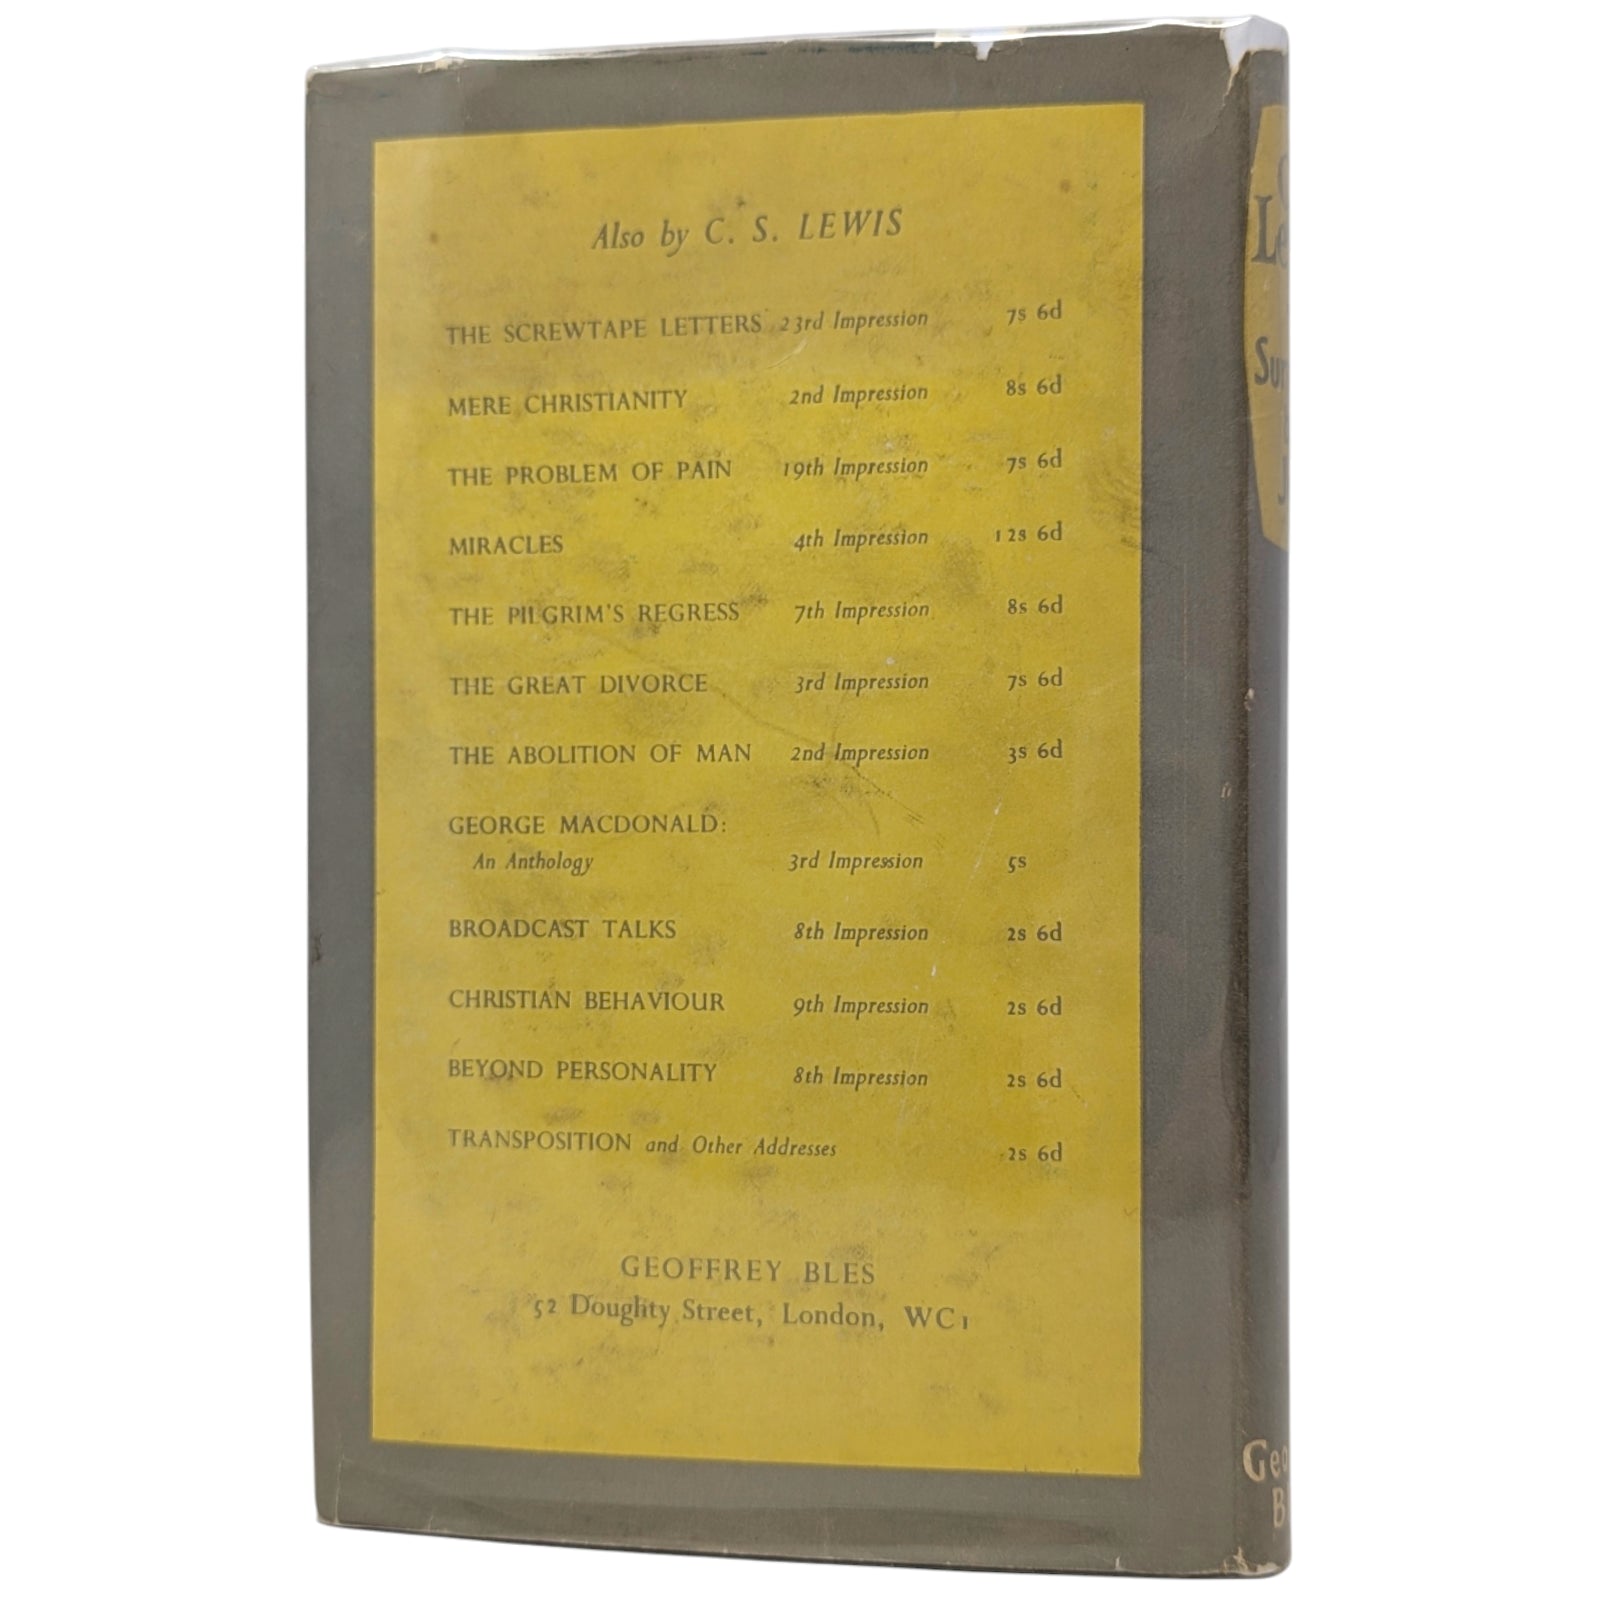 Also by C. S. LEWIS
THE SCREWTAPE LETTERS 23rd Impression 7s 6d
MERE CHRISTIANITY 2nd Impression 8s 6d
THE PROBLEM OF PAIN 19th Impression 7s 6d
MIRACLES 4th Impression 12s 6d
THE PILGRIM'S REGRESS 7th Impression 8s 6d
THE GREAT DIVORCE 3rd Impression 7s 6d
THE ABOLITION OF MAN 2nd Impression 3s 6d
GEORGE MACDONALD:
An Anthology 3rd Impression 5s
BROADCAST TALKS 8th Impression 2s 6d
CHRISTIAN BEHAVIOUR 9th Impression 2s 6d
BEYOND PERSONALITY 8th Impression 2s 6d
TRANSPOSITION and Other Addresses 2s 6d
GEOFFREY BLES
52 Doughty Street, London, WC1